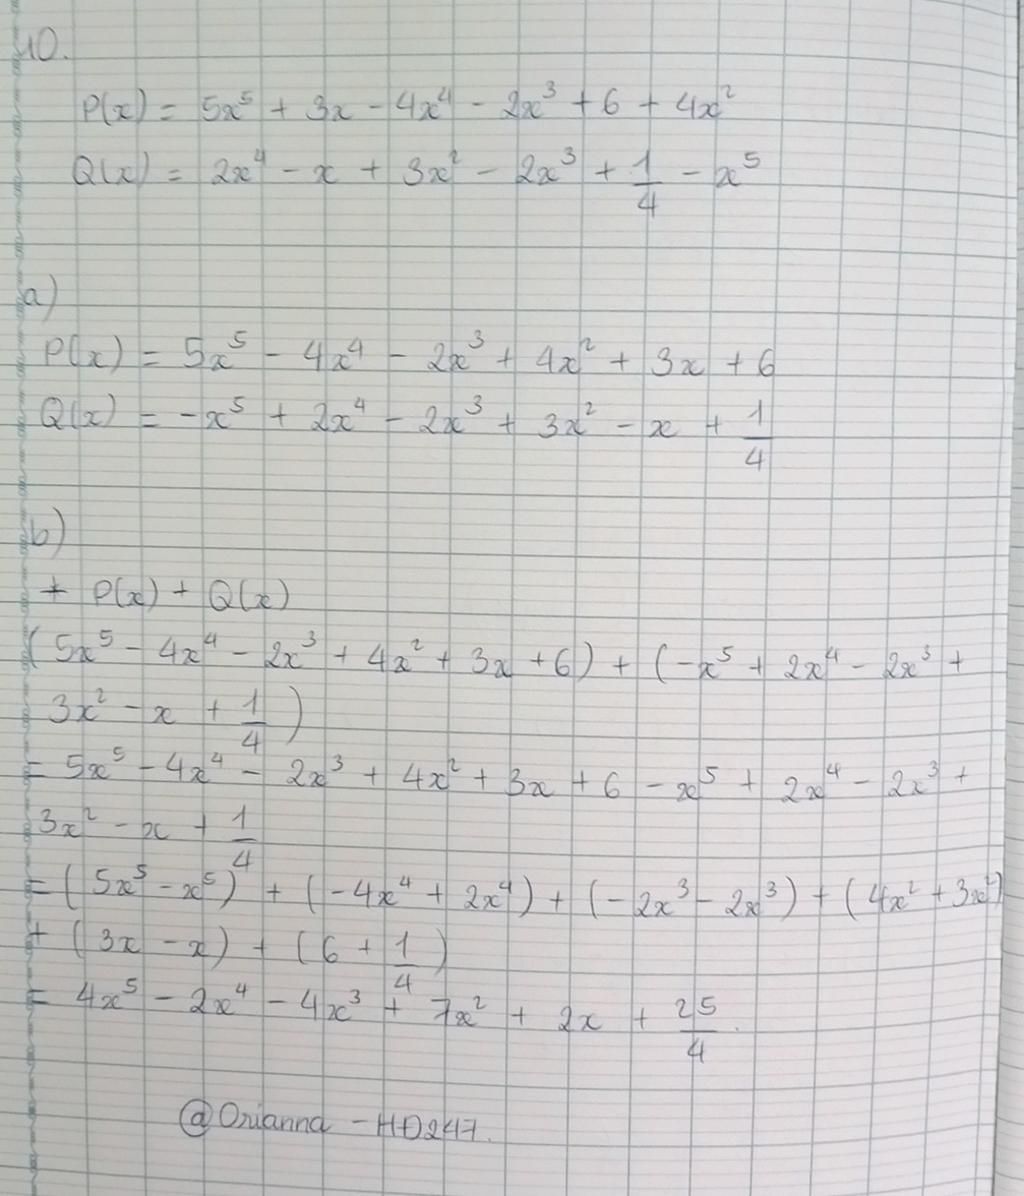 10.
P(x) = 5x⁵ + 3x - 4x⁴ - 2x³ + 6 + 4x²
Q(x) = 2x⁴ - x + 3x² - 2x³ + 1/4 - x⁵
a)
P(x) = 5x⁵ - 4x⁴ - 2x³ + 4x² + 3x + 6
Q(x) = -x⁵ + 2x⁴ - 2x³ + 3x² - x + 1/4
b)
+ P(x) + Q(x)
(5x⁵ - 4x⁴ - 2x³ + 4x² + 3x + 6) + (-x⁵ + 2x⁴ - 2x³ +
3x² - x + 1/4)
= 5x⁵ - 4x⁴ - 2x³ + 4x² + 3x + 6 - x⁵ + 2x⁴ - 2x³ +
3x² - x + 1/4
= (5x⁵ - x⁵) + (-4x⁴ + 2x⁴) + (-2x³ - 2x³) + (4x² + 3x²)
+ (3x - x) + (6 + 1/4)
= 4x⁵ - 2x⁴ - 4x³ + 7x² + 2x + 25/4.
@Orianna - HĐ247.